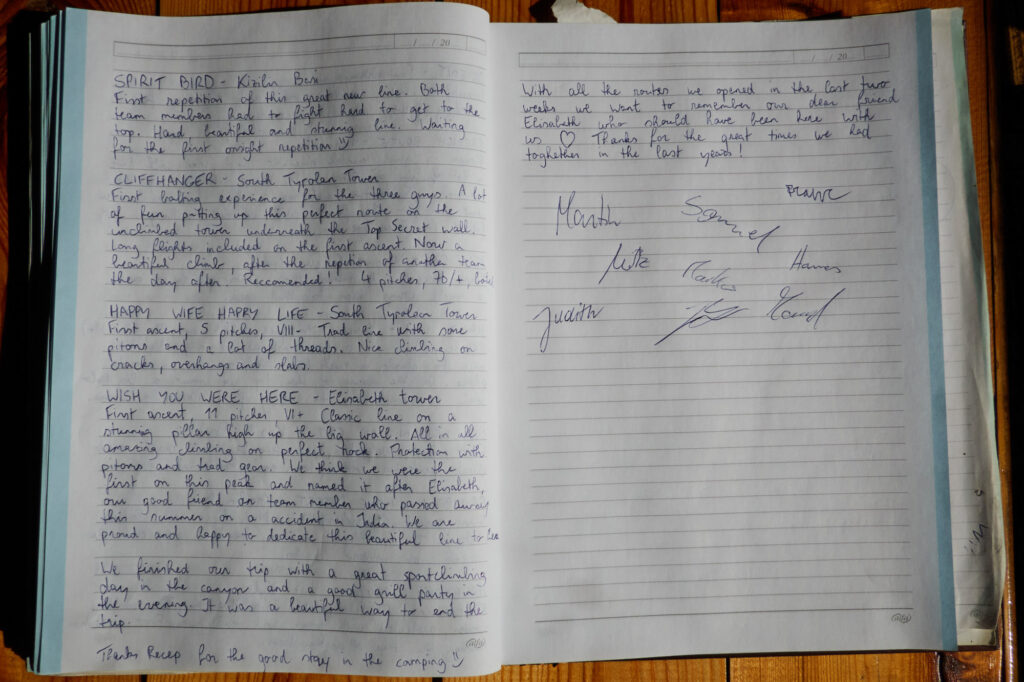 / / 20
SPIRIT BIRD - Kizilin Bari
First repetition of this great new line. Both
team members had to fight hard to get to the
top. Hard, beautiful and stunning line. Waiting
for the first onsight repetition
CLIFFHANGER - South Tyrolan Tower
First bolting experience for the three guys. A lot
of fun putting up this perfect route on the
unclimbed tower underneath the Top Secret wall.
Long flights included on the first ascent. Now a
beautiful climb, after the repetion of another team
the day after. Reccomended! 4 pitches, 7b/+,
HAPPY WIFE HAPPY LIFE - South Tyrolan Tower
First ascent, 5 pitches, VIII- Trad line with some
pitons and a lot of threads. Nice climbing on
cracks, overhangs and slabs.
WISH YOU WERE HERE - Elisabeth tower
First ascent, 11 pitches, VI+ Classic line on a
stunning pillar high up the big wall. All in all
amazing climbing on perfect rock. Protection with
pitons and trad gear. We think we were the
first on this peak and named it after Elisabeth,
our good friend an team member who passed away
this summer on a accident in India. We are
proud and happy to dedicate this beautiful line to her
We finished our trip with a great sportclimbing
day in the canyon and a good grill party in
the evening. It was a beautiful way to end the
trip.
Thanks Recep for the good stay in the camping
/ / 20
With all the routes we opened in the last two
weeks we want to remember our dear friend
Elisabeth who should have been here with
us ♡ Thanks for the great times we had
toghether in the last years!
Martin Samuel
Markus Hannes
Judith